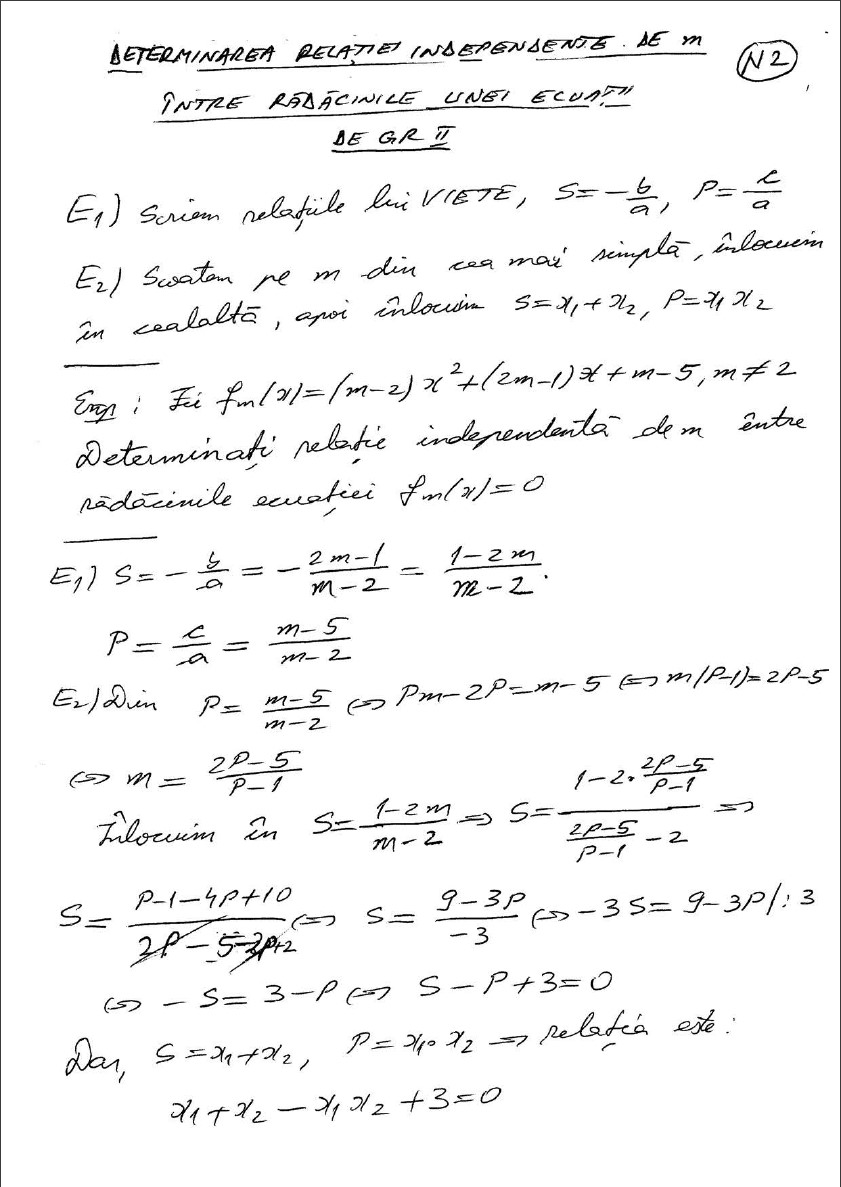 DETERMINAREA RELAȚIEI INDEPENDENTE DE m
N2
ÎNTRE RĂDĂCINILE UNEI ECUAȚII
DE GR II
E1) Scriem relațiile lui VIETE, S = -b/a, P = c/a
E2) Scoatem pe m din cea mai simplă, înlocuim
în cealaltă, apoi înlocuim S=x₁+x₂, P=x₁x₂
Exp: Fie fm(x)=(m-2)x²+(2m-1)x+m-5, m≠2
Determinați relație independentă de m între
rădăcinile ecuației fm(x)=0
E1) S = -b/a = -(2m-1)/(m-2) = (1-2m)/(m-2).
P = c/a = (m-5)/(m-2)
E2) Din P = (m-5)/(m-2) ⇔ Pm-2P=m-5 ⇔ m(P-1)=2P-5
⇔ m = (2P-5)/(P-1)
Înlocuim în S = (1-2m)/(m-2) ⇒ S = (1-2·(2P-5)/(P-1))/((2P-5)/(P-1)-2) ⇒
S = (P-1-4P+10)/(2P-5-2P+2) ⇔ S = (9-3P)/(-3) ⇔ -3S = 9-3P/:3
⇔ -S = 3-P ⇔ S-P+3=0
Dar, S=x₁+x₂, P=x₁·x₂ ⇒ relația este:
x₁+x₂-x₁x₂+3=0